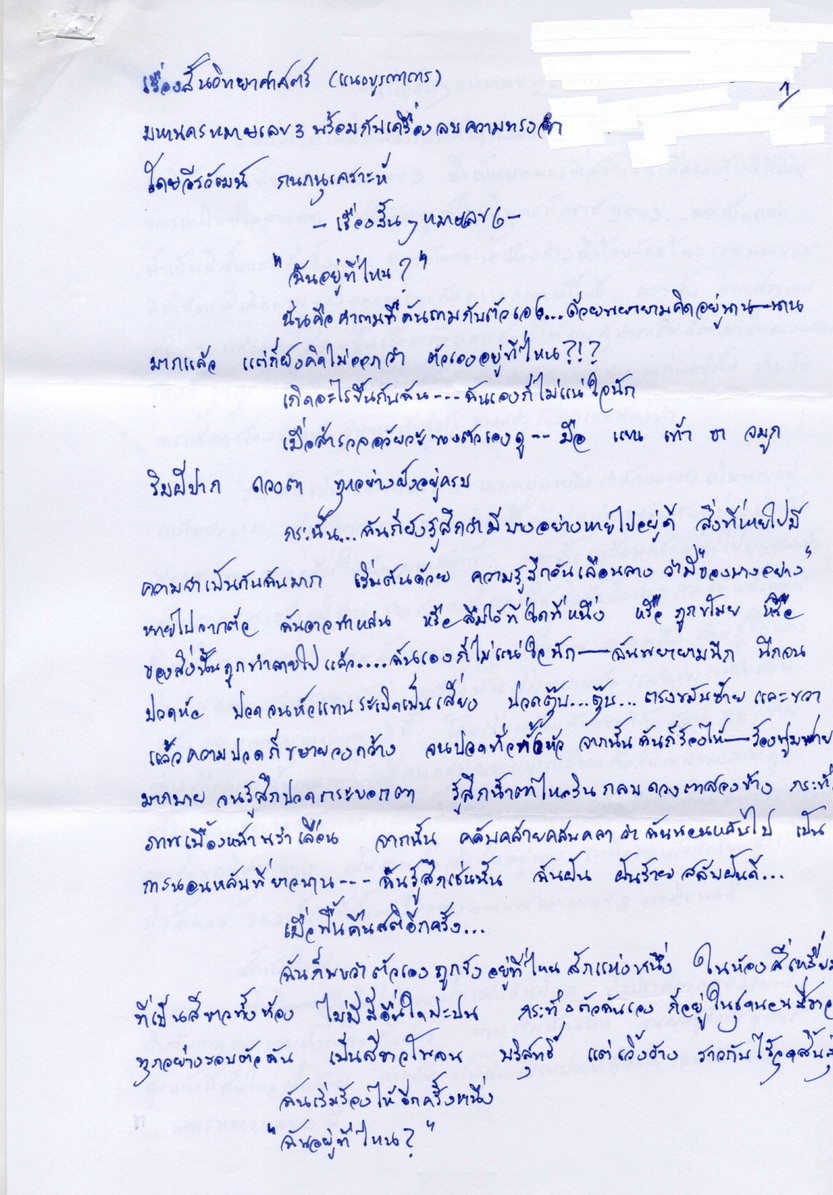 เรื่องสั้นวิทยาศาสตร์ (แนวบูรณาการ)
1
มหานครหมายเลข 3 พร้อมกับเครื่องลบความทรงจำ
โดยวีรวัฒน์ กนกนุเคราะห์
- เรื่องสั้น ๆ หมายเลข 6 -
"ฉันอยู่ที่ไหน?"
นั่นคือคำถามที่ฉันถามกับตัวเอง... ด้วยพยายามคิดอยู่นาน—นาน
มากแล้ว แต่ก็ยังคิดไม่ออกว่า ตัวเองอยู่ที่ไหน?!?
เกิดอะไรขึ้นกับฉัน--- ฉันเองก็ไม่แน่ใจนัก
เมื่อสำรวจอวัยวะของตัวเองดู -- มือ แขน เท้า ขา จมูก
ริมฝีปาก ดวงตา ทุกอย่างยังอยู่ครบ
กระนั้น... ฉันก็ยังรู้สึกว่ามีบางอย่างหายไปอยู่ดี สิ่งที่หายไปมี
ความจำเป็นกับฉันมาก เริ่มต้นด้วย ความรู้สึกอันเลือนลาง ว่ามี"ของบางอย่าง"
หายไปจากตัว ฉันอาจทำหล่น หรือ ลืมไว้ที่ใดที่หนึ่ง หรือ ถูกขโมย หรือ
ของสิ่งนั้นถูกทำลายไปแล้ว.... ฉันเองก็ไม่แน่ใจนัก—ฉันพยายามนึก นึกจน
ปวดหัว ปวดจนหัวแทบระเบิดเป็นเสี่ยง ปวดตุ๊บ...ตุ๊บ... ตรงขมับซ้าย และขวา
แล้วความปวดก็ขยายวงกว้าง จนปวดทั่วทั้งหัว จากนั้น ฉันก็ร้องไห้—ร้องฟูมฟาย
มากมาย จนรู้สึกปวดกระบอกตา รู้สึกน้ำตาไหลรินกลบดวงตาสองข้าง กระทั่
ภาพเบื้องหน้าพร่าเลือน จากนั้น คลับคล้ายคลับคลา ว่าฉันนอนหลับไป เป็น
การนอนหลับที่ยาวนาน--- ฉันรู้สึกเช่นนั้น ฉันฝัน ฝันร้ายสลับฝันดี...
เมื่อฟื้นคืนสติอีกครั้ง...
ฉันก็พบว่าตัวเองถูกขังอยู่ที่ไหนสักแห่งหนึ่ง ในห้องสี่เหลี่ยม
ที่เป็นสีขาวทั้งห้อง ไม่มีสีอื่นใดปะปน กระทั่งตัวฉันเอง ก็อยู่ในชุดนอนสีขาว
ทุกอย่างรอบตัวฉัน เป็นสีขาวโพลน บริสุทธิ์ แต่เวิ้งว้าง ราวกับไร้จุดสิ้นสุ
ฉันเริ่มร้องไห้อีกครั้งหนึ่ง
"ฉันอยู่ที่ไหน?"